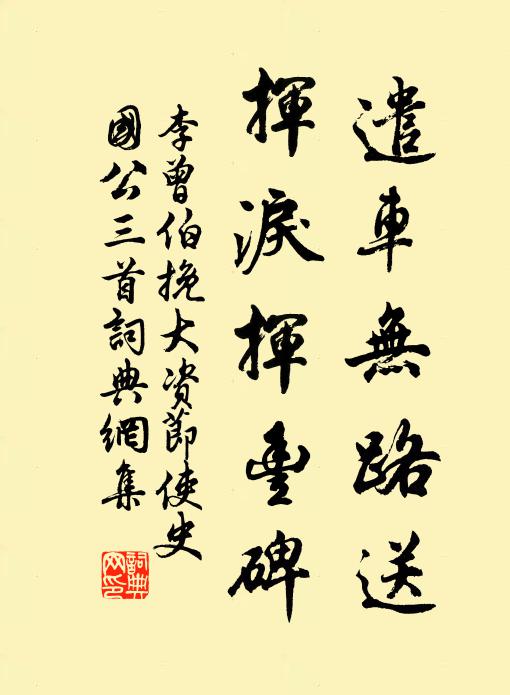 遣車無路送
揮淚揮豊碑
李曾伯挽大資節使史
國公三首詞典網集
詞典網印